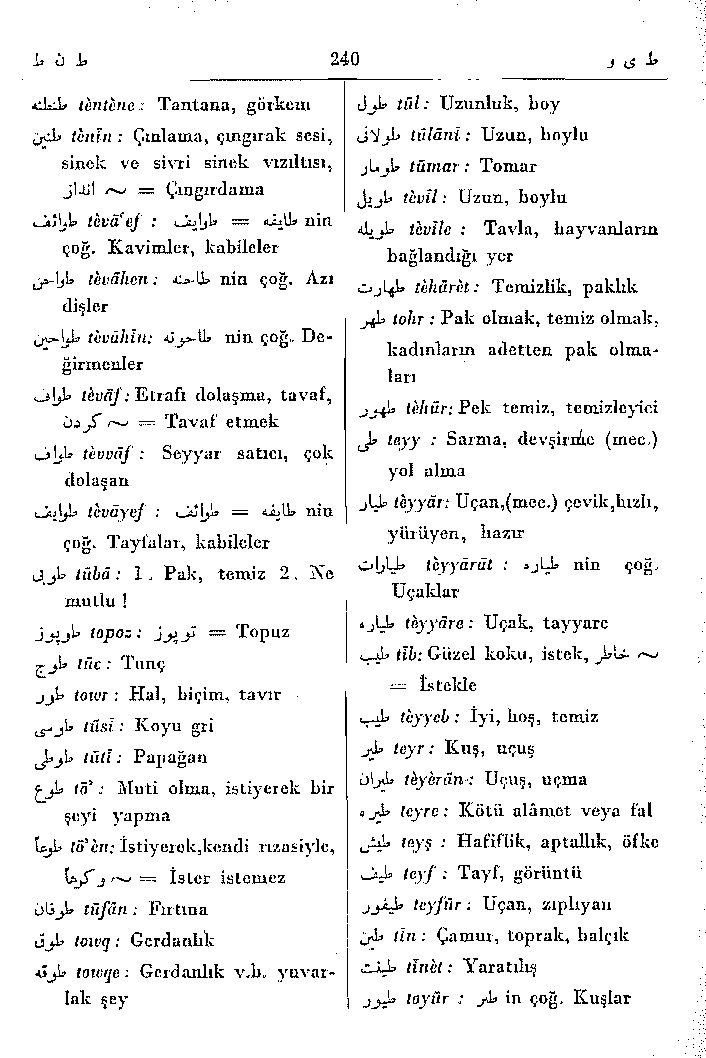 ط ن ط 240 ط ی و
طنطنه tèntène : Tantana, görkem
طنین tènîn : Çınlama, çıngırak sesi,
sinek ve sivri sinek vızıltısı,
انداز ~ = Çıngırdama
طوائف tèvâ'ef : طوایف = طایفه nin
çoğ. Kavimler, kabileler
طواحن tèvâhen : طاحنه nin çoğ. Azı
dişler
طواحین tèvâhîn: طاحونه nin çoğ. De-
ğirmenler
طواف tèvâf : Etrafı dolaşma, tavaf,
کردن ~ = Tavaf etmek
طواف tèvvâf : Seyyar satıcı, çok
dolaşan
طوایف tèvâyef : طوائف = طایفه nin
çoğ. Tayfalar, kabileler
طوبی tûbâ : 1. Pak, temiz 2. Ne
mutlu !
طوپوز topoz : توپوز = Topuz
طوج tûc : Tunç
طور towr : Hal, biçim, tavır
طوسی tûsî : Koyu gri
طوطی tûtî : Papağan
طوع tô' : Muti olma, istiyerek bir
şeyi yapma
طوعاً tô'èn: İstiyerek,kendi rızasiyle,
وکرهاً ~ = İster istemez
طوفان tûfân : Fırtına
طوق towq : Gerdanlık
طوقه towqe : Gerdanlık v.b. yuvar-
lak şey
طول tûl : Uzunluk, boy
طولانی tûlânî : Uzun, boylu
طومار tûmar : Tomar
طویل tèvîl : Uzun, boylu
طویله tèvîle : Tavla, hayvanların
bağlandığı yer
طهارت tèhârèt : Temizlik, paklık
طهر tohr : Pak olmak, temiz olmak,
kadınların adetten pak olma-
ları
طهور tèhûr: Pek temiz, temizleyici
طی tayy : Sarma, devşirme (mec.)
yol alma
طیار tèyyâr: Uçan,(mec.) çevik,hızlı,
yürüyen, hazır
طیارات tèyyârât : طیاره nin çoğ.
Uçaklar
طیاره tèyyâre : Uçak, tayyare
طیب tîb: Güzel koku, istek, خاطر ~
= İstekle
طیب tèyyeb : İyi, hoş, temiz
طیر teyr : Kuş, uçuş
طیران tèyèrân : Uçuş, uçma
طیره teyre : Kötü alâmet veya fal
طیش teyş : Hafiflik, aptallık, öfke
طیف teyf : Tayf, görüntü
طیفور teyfûr : Uçan, zıplıyan
طین tîn : Çamur, toprak, balçık
طینت tînèt : Yaratılış
طیور toyûr : طیر in çoğ. Kuşlar